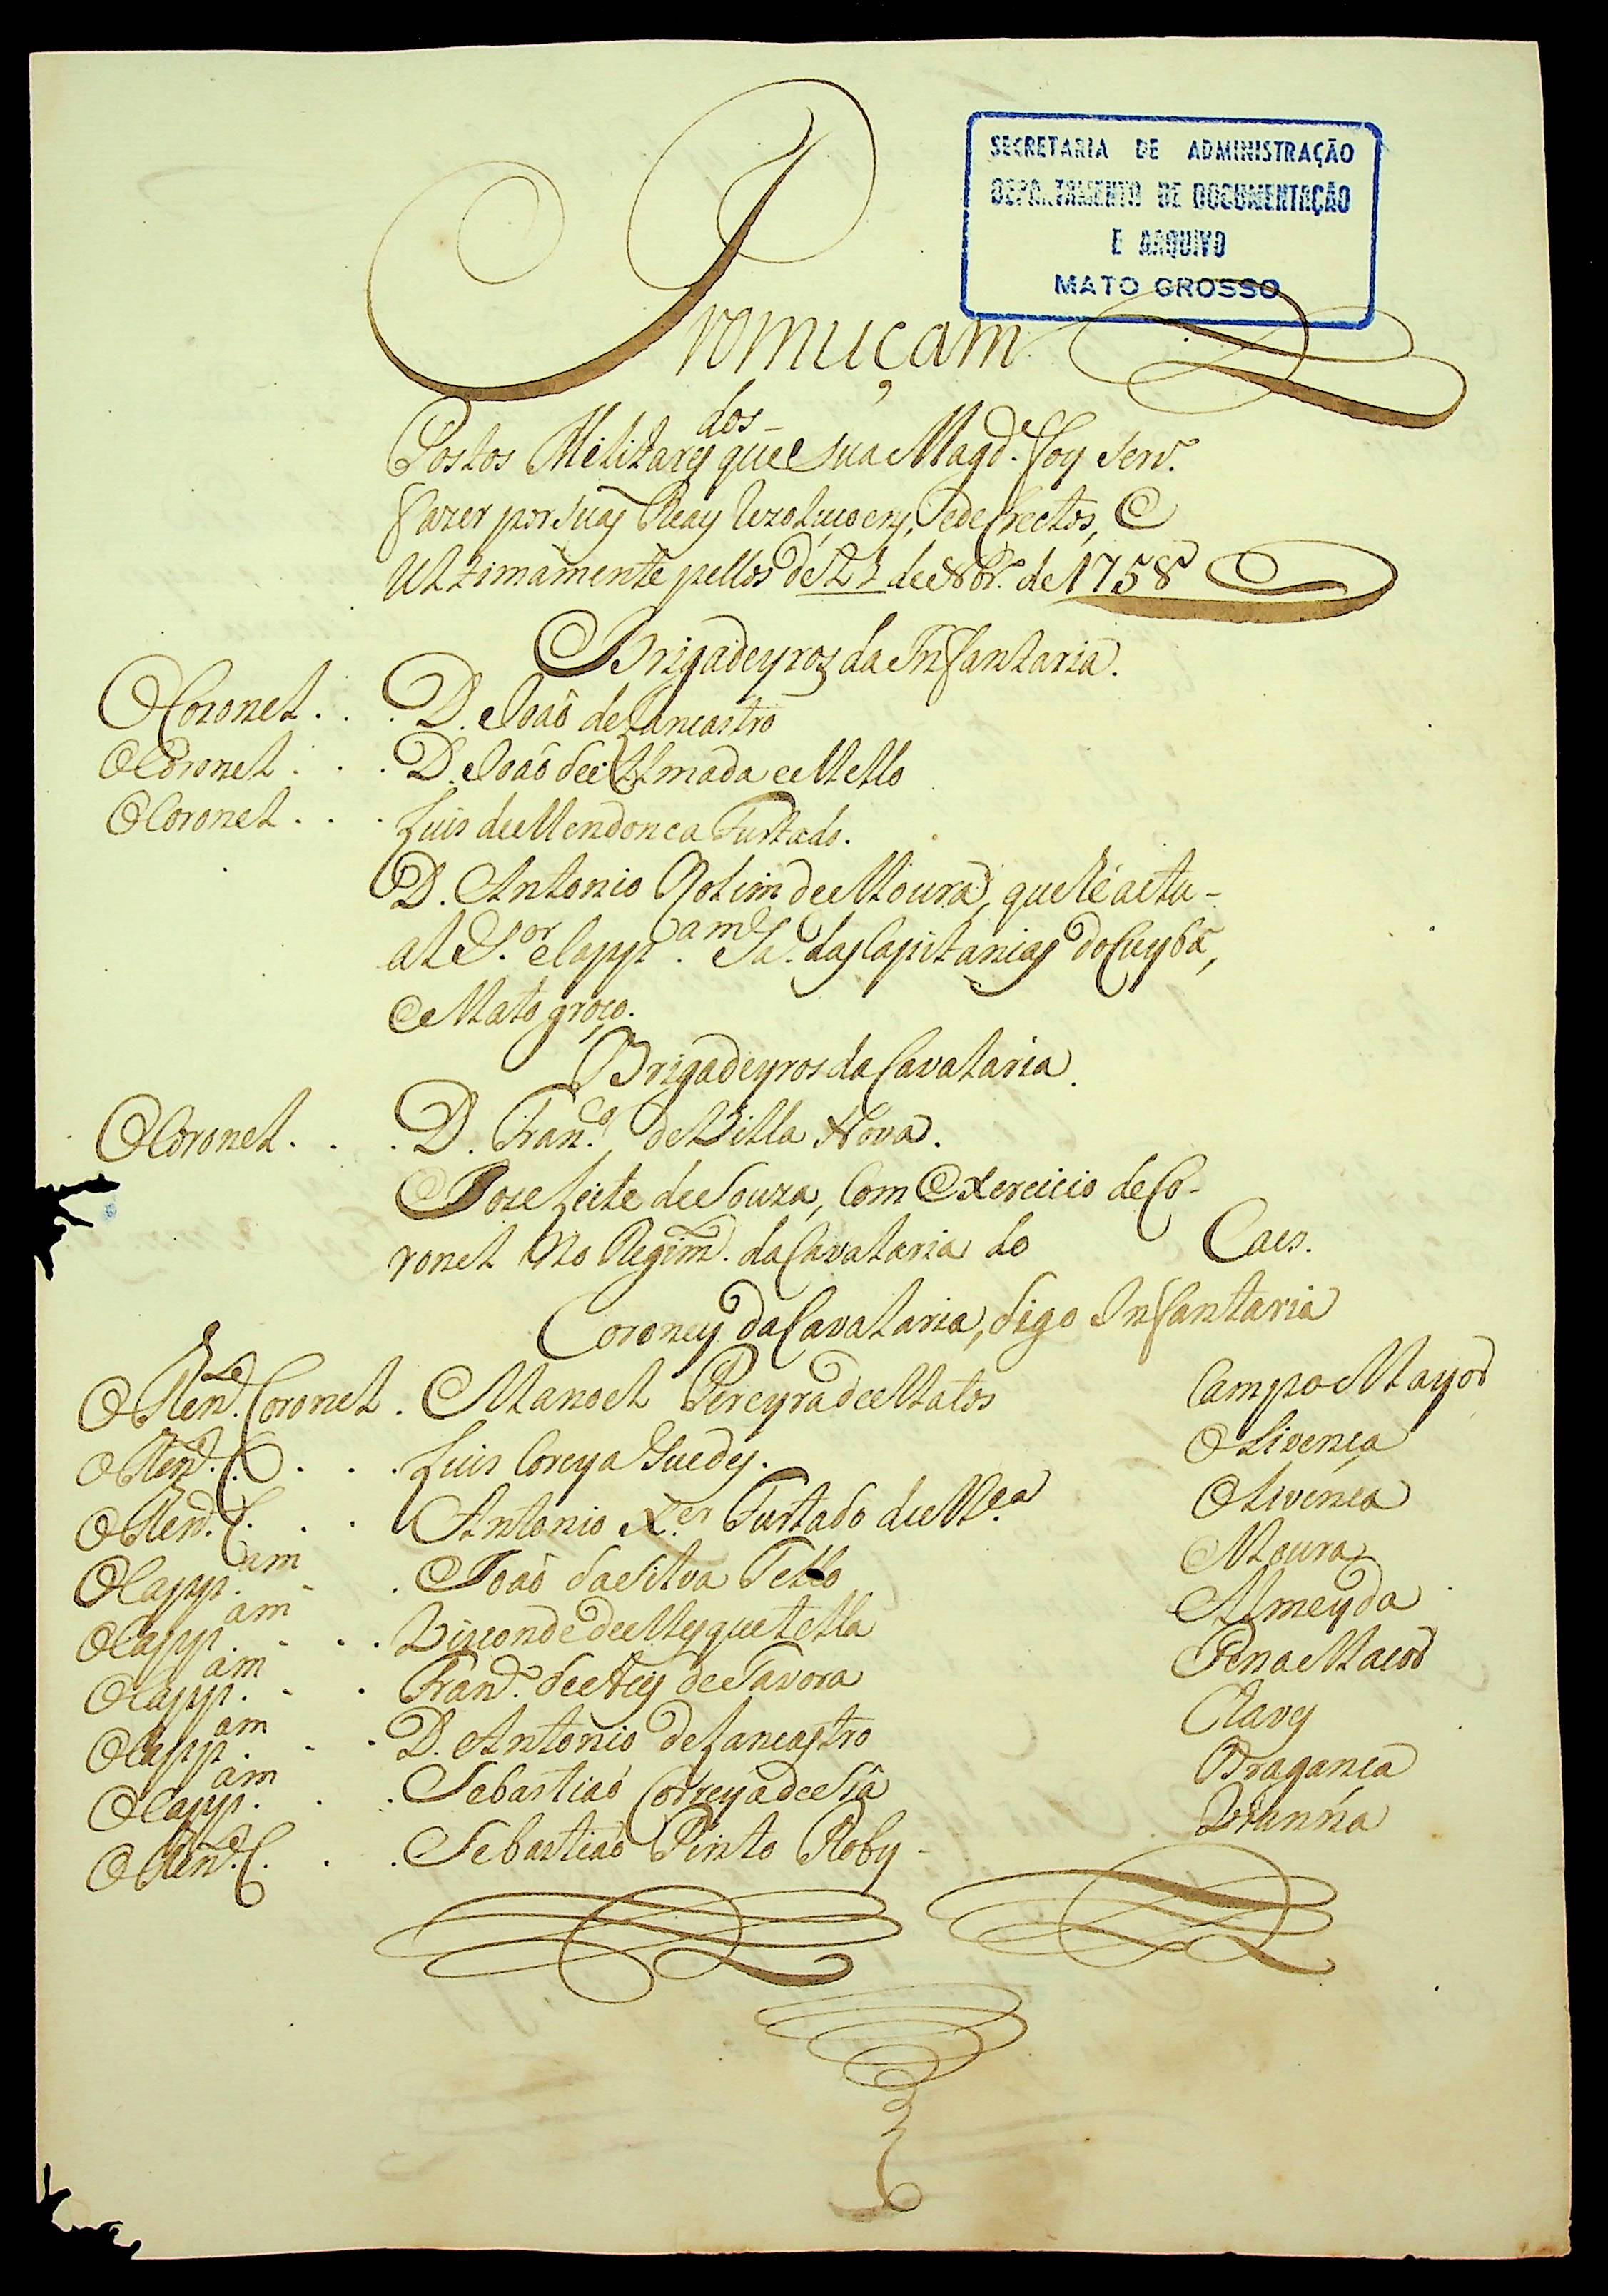 SECRETARIA DE ADMINISTRAÇÃO
DEPARTAMENTO DE DOCUMENTAÇÃO
E ARQUIVO
MATO GROSSO
Promuçam
dos
Postos Militares que Sua Magd.e foy Serv.o
fazer por Suas Reays Rezoluçoens, e decrectos, e
Ultimamente pellos de 21 de Nbr.o de 1758
Brigadeyros da Infantaria.
O Coronel . . . D. Joaõ de Lancastro
O Coronel . . . D. Joaõ de Almada e Mello
O Coronel . . . Luis de Mendonca Furtado.
D. Antonio Rolim de Moura, que hé actu-
al G.or e Capp.am G.al das Capitanias do Cuyba,
e Mato groço.
Brigadeyros da Cavalaria.
O Coronel . . . D. Fran.co de Villa Nova.
Joze Leite de Souza, Com Exercicio de Co-
ronel No Regim.to da Cavalaria do Caes.
Coroneys da Cavalaria, digo Infantaria
O Ten.e Coronel . Manoel Pereyra de Matos Campo Mayor
O Ten.e C. . . . Luis Coreya Guedes. Olivença
O Ten.e C. . . . Antonio X.er Furtado de M.ça Olivença
O Capp.am . . Joaõ da Silva Tello Moura
O Capp.am . . . Visconde de Mesquetella Almeyda
O Capp.am . . Fran.co de Assis de Tavora Pena Macor
O Capp.am . . . D. Antonio de Lancastro Chaves
O Capp.am . . . Sebastiaõ Correya de Sâ Bragança
O Ten.e C. . . . Sebastiaõ Pinto Roby Vianna